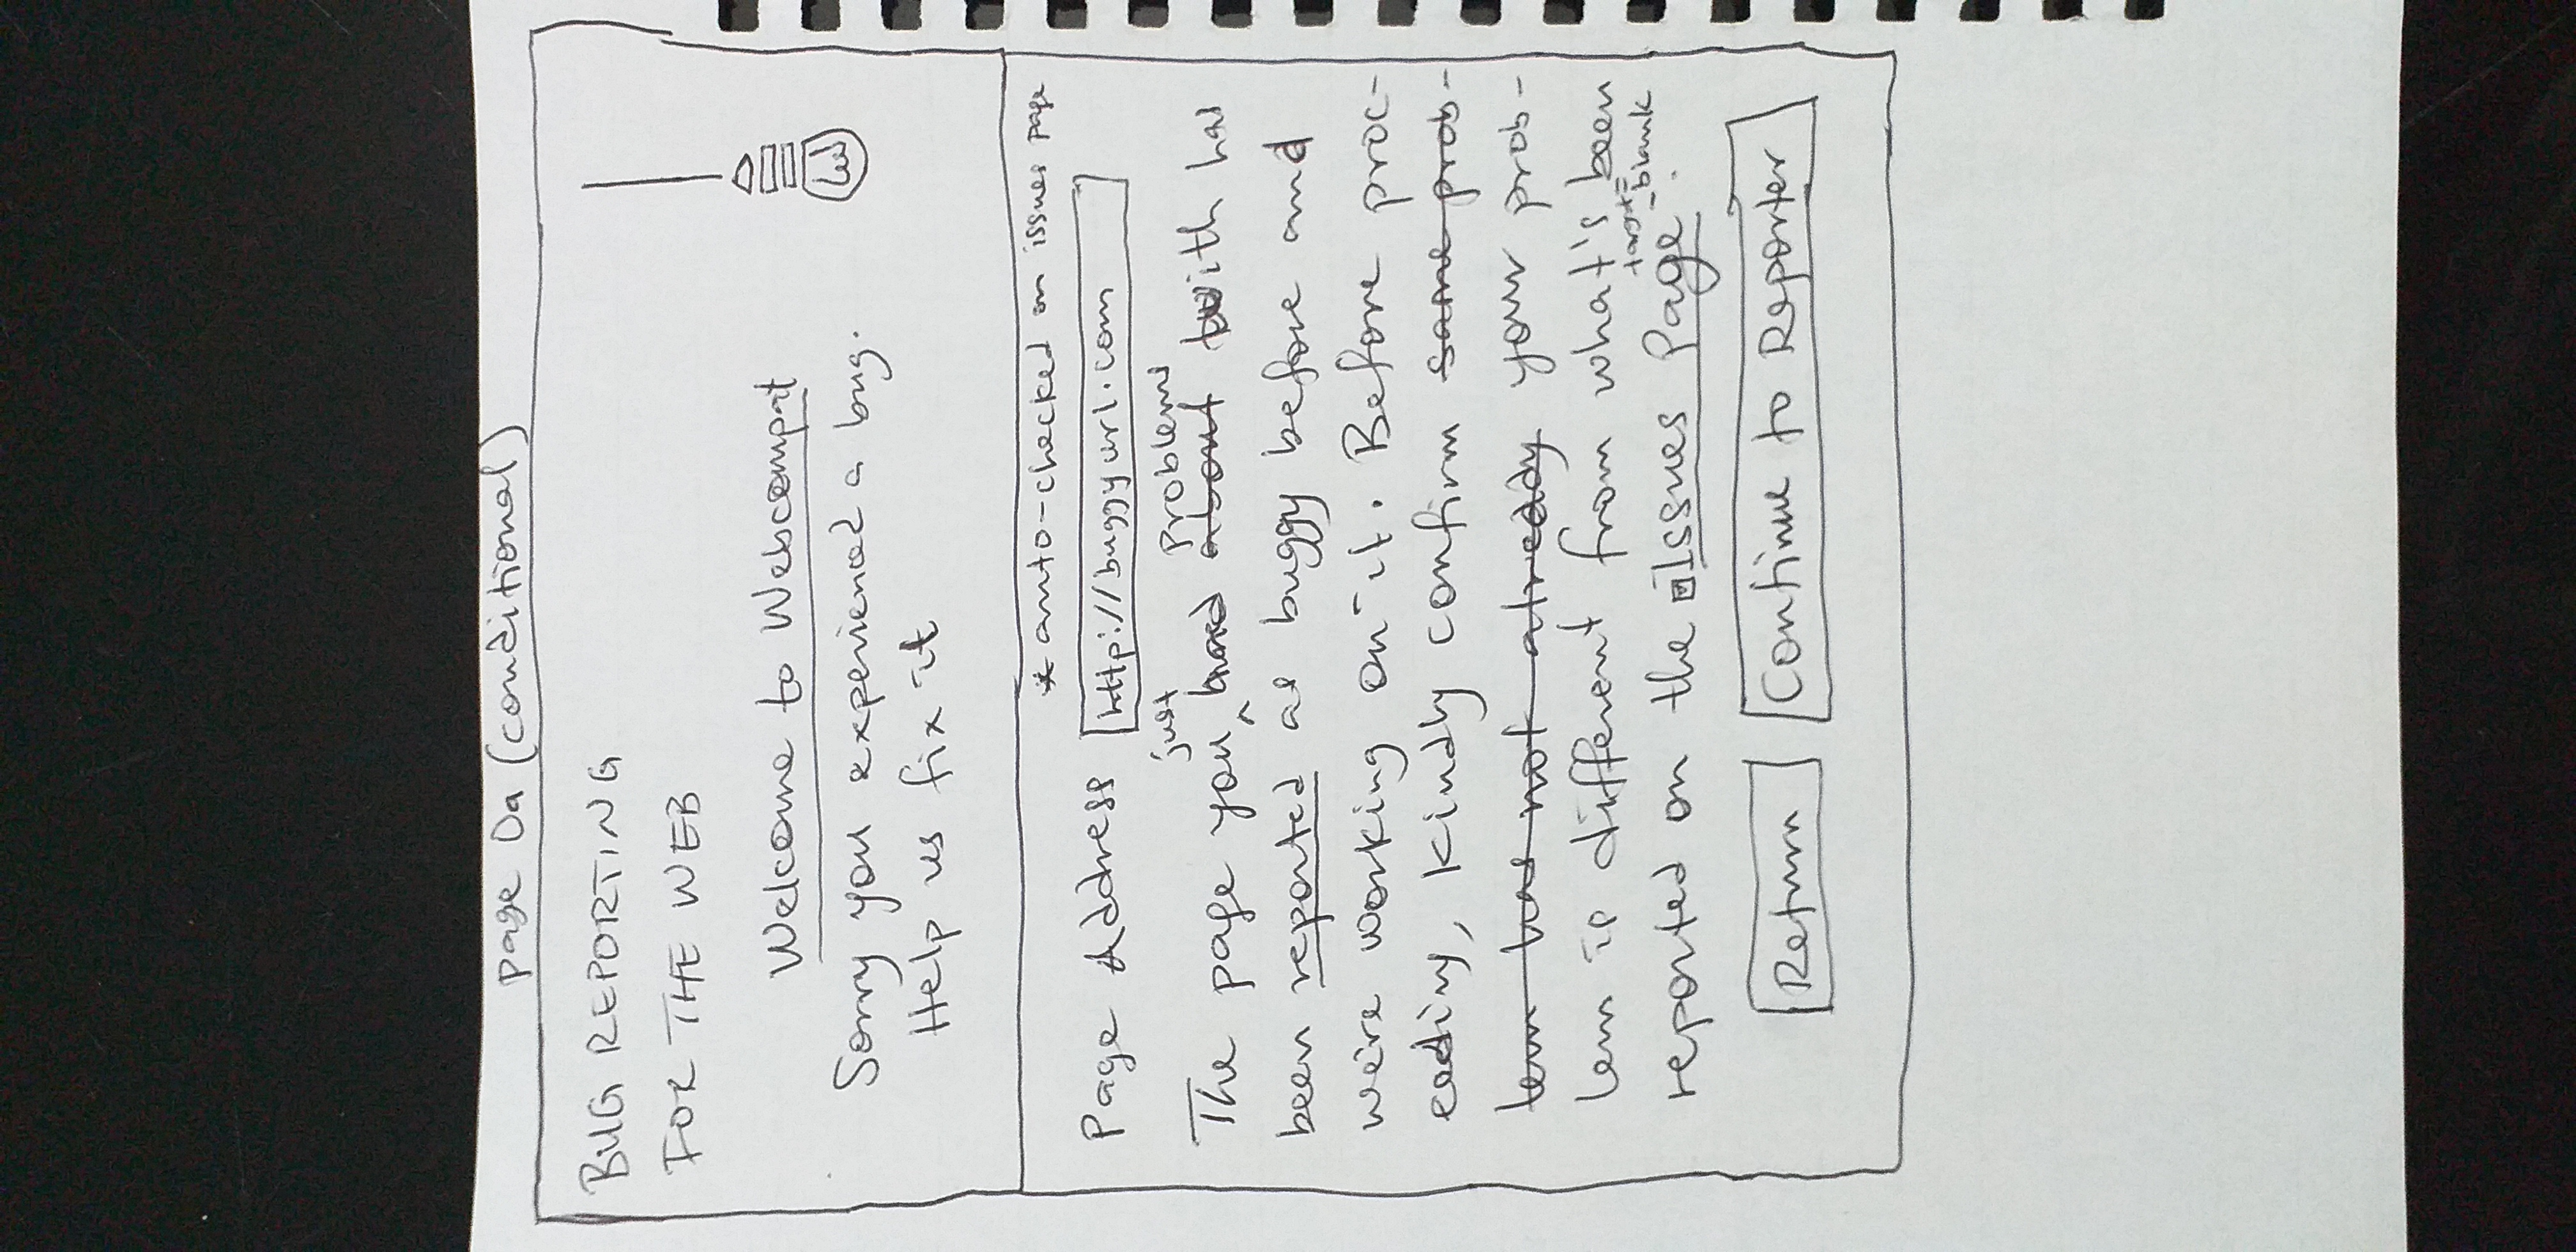 page 0a (conditional)
BUG REPORTING
FOR THE WEB
Welcome to Webcompat
Sorry you experienced a bug.
Help us fix it
* auto-checked on issues page
Page Address http://buggyurl.com
just problems
The page you ^ had about with has
been reported as buggy before and
we're working on it. Before proc-
eeding, kindly confirm same prob-
lem has not already your prob-
lem is different from what's been
target=_blank
reported on the Issues Page.
Return Continue to Reporter